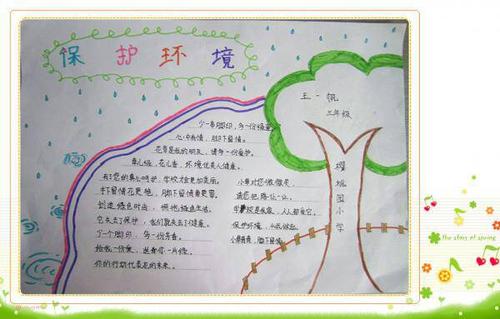 保护环境
王一帆
三年级
少一串脚印,多一份绿意。
心中有情,脚下留情。
花草是我的朋友,请多一份爱护。
鸟儿唱,花儿香,环境优美人健康。
有了您的真心呵护,学校才会更加美丽。
手下留情花更艳,脚下留情
创造绿色时尚,拥抱绿色生活。
它失去了保护,我们就失去了健康。
少一个脚印,多一份芳香。
给我一份爱,送卷你一片绿。
你的行动代表花的未来。
小草对您微微笑,
请您把路让一让。
学校是我家,人人都爱它。
保护环境,从我做起。
小草青青,脚下留情。
园小学
the story of spring